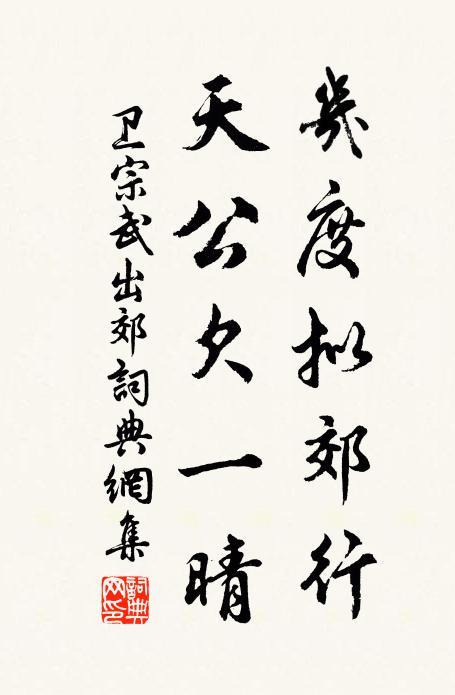 幾度拟郊行
天公欠一晴
卫宗武出郊詞典網集
詞典网印